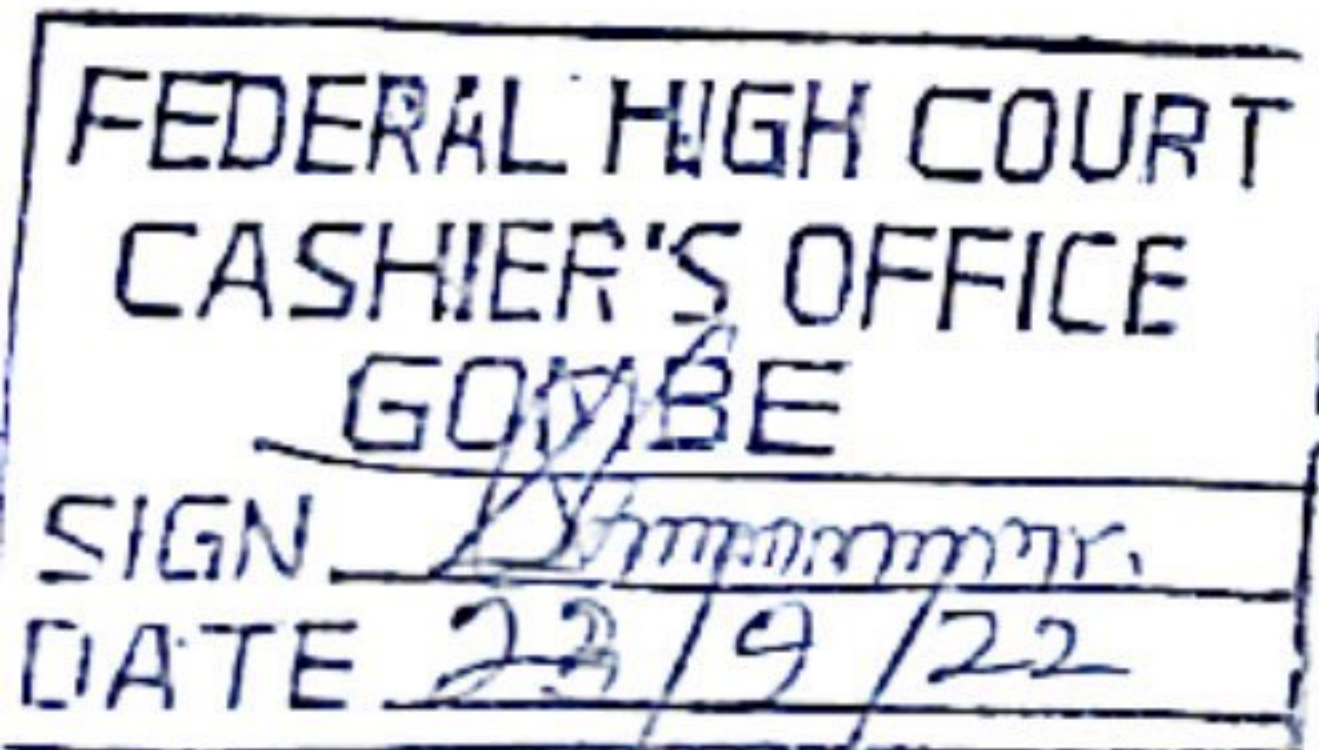 FEDERAL HIGH COURT
CASHIER'S OFFICE
GOMBE
SIGN
DATE 23/9/22